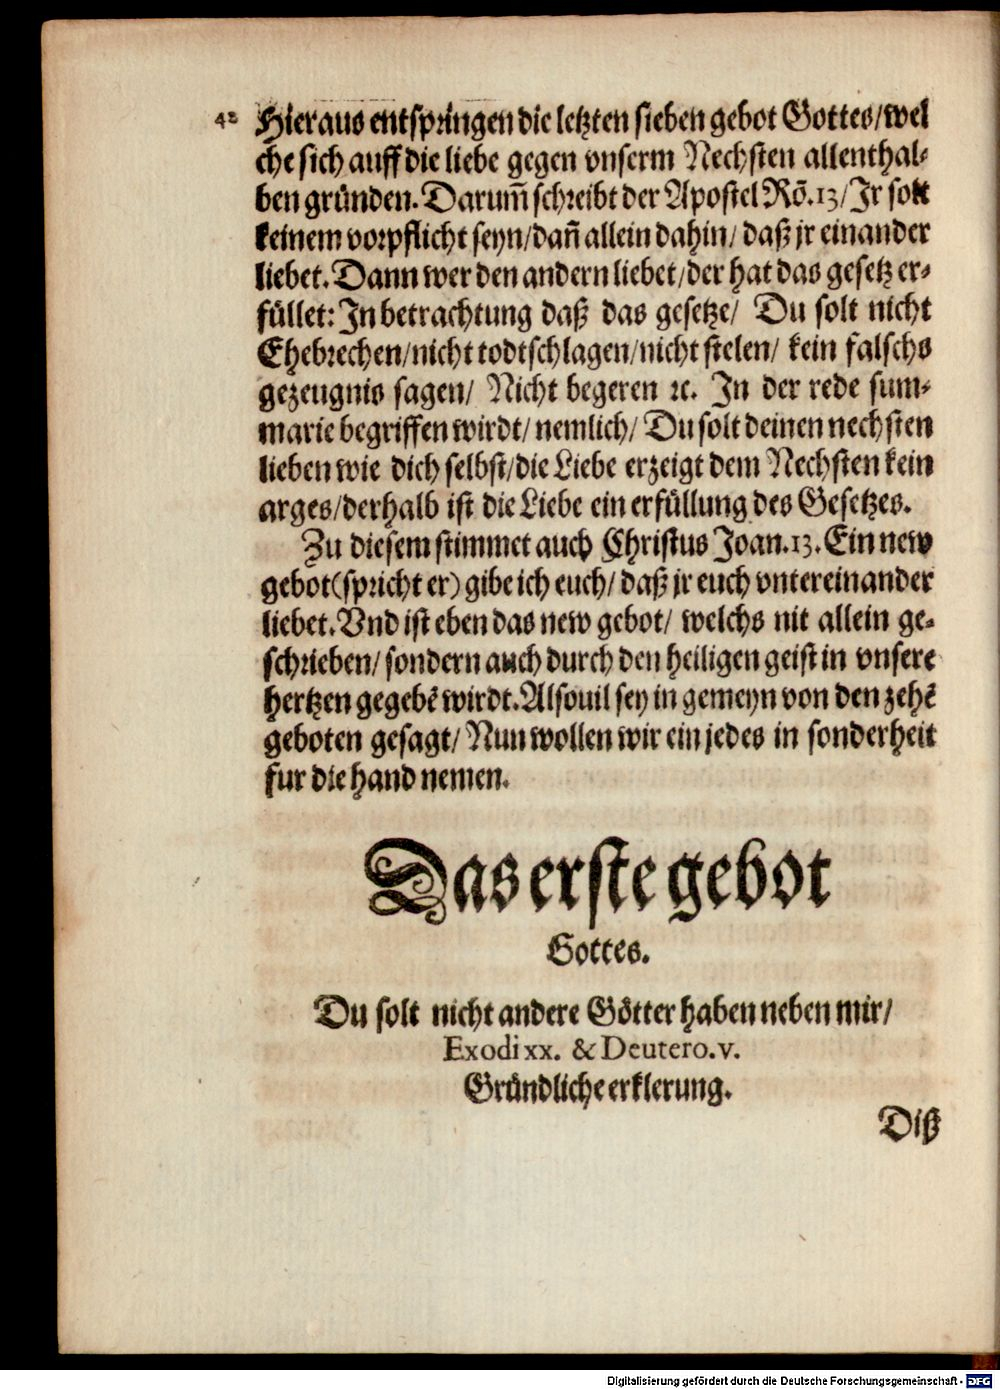 42 Hieraus entspringen die letzten sieben gebot Gottes/wel
che sich auff die liebe gegen vnserm Nechsten allenthal-
ben gründen. Darum̃ schreibt der Apostel Rõ.13/Jr solt
keinem vorpflicht seyn/dañ allein dahin/ daß jr einander
liebet. Dann wer den andern liebet/der hat das gesetz er-
füllet: Jn betrachtung daß das gesetze/ Du solt nicht
Ehebrechen/nicht todtschlagen/nicht stelen/ kein falschs
gezeugnis sagen/ Nicht begeren ꝛc. Jn der rede sum-
marie begriffen wirdt/ nemlich/ Du solt deinen nechsten
lieben wie dich selbst/die Liebe erzeigt dem Nechsten kein
arges/derhalb ist die Liebe ein erfüllung des Gesetzes.
Zu diesem stimmet auch Christus Joan.13. Ein new
gebot(spricht er) gibe ich euch/ daß jr euch vntereinander
liebet. Vnd ist eben das new gebot/ welchs nit allein ge-
schrieben/ sondern auch durch den heiligen geist in vnsere
hertzen gegebẽ wirdt. Alsouil sey in gemeyn von den zehẽ
geboten gesagt/ Nun wollen wir ein jedes in sonderheit
fur die hand nemen.
Das erste gebot
Gottes.
Du solt nicht andere Götter haben neben mir/
Exodi xx. & Deutero. v.
Gründliche erklerung.
Diß
Digitalisierung gefördert durch die Deutsche Forschungsgemeinschaft - DFG